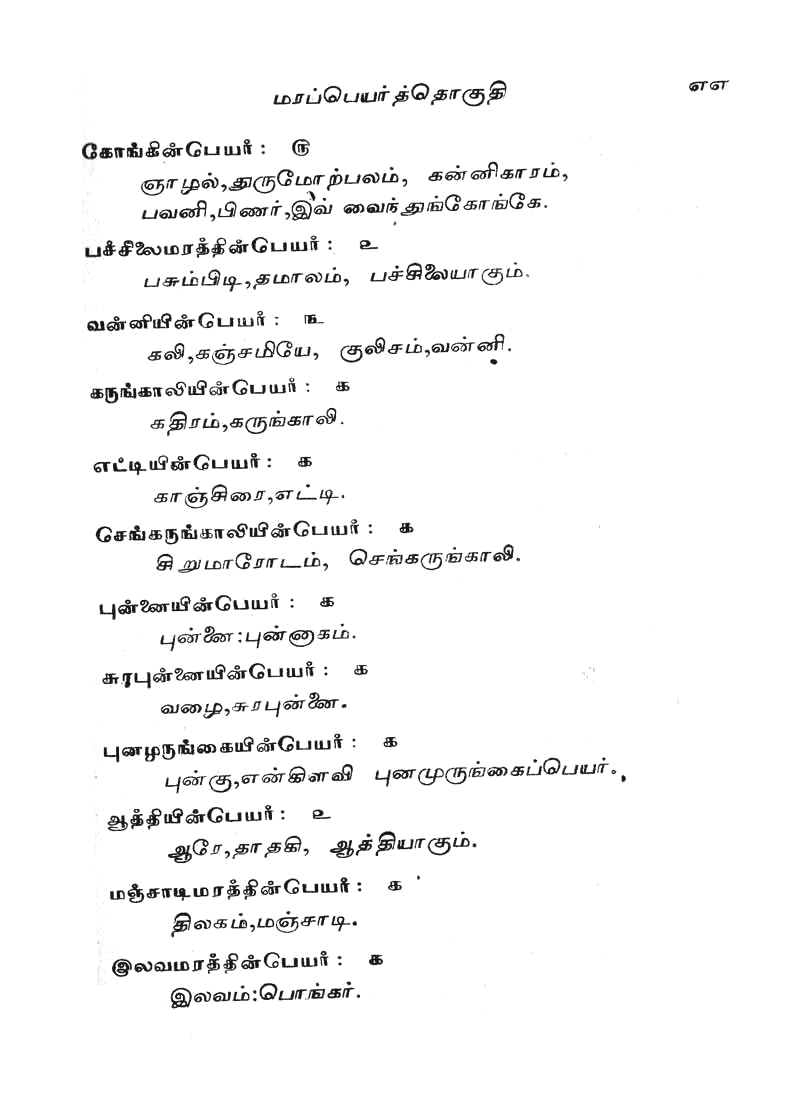 மரப்பெயர்த்தொகுதி ௭௭
கோங்கின்பெயர்: ௫
ஞாழல்,துருமோற்பலம், கன்னிகாரம்,
பவனி,பிணர்,இவ் வைந்துங்கோங்கே.
பச்சிலைமரத்தின்பெயர்: ௨
பசும்பிடி,தமாலம், பச்சிலையாகும்.
வன்னியின்பெயர்: ௩
கலி,கஞ்சமியே, குலிசம்,வன்னி.
கருங்காலியின்பெயர்: ௧
கதிரம்,கருங்காலி.
எட்டியின்பெயர்: ௧
காஞ்சிரை,எட்டி.
செங்கருங்காலியின்பெயர்: ௧
சிறுமாரோடம், செங்கருங்காலி.
புன்னையின்பெயர்: ௧
புன்னை:புன்னாகம்.
சுரபுன்னையின்பெயர்: ௧
வழை,சுரபுன்னை.
புனமுருங்கையின்பெயர்: ௧
புன்கு,என்கிளவி புனமுருங்கைப்பெயர்.
ஆத்தியின்பெயர்: ௨
ஆரே,தாதகி, ஆத்தியாகும்.
மஞ்சாடிமரத்தின்பெயர்: ௧
திலகம்,மஞ்சாடி.
இலவமரத்தின்பெயர்: ௧
இலவம்:பொங்கர்.